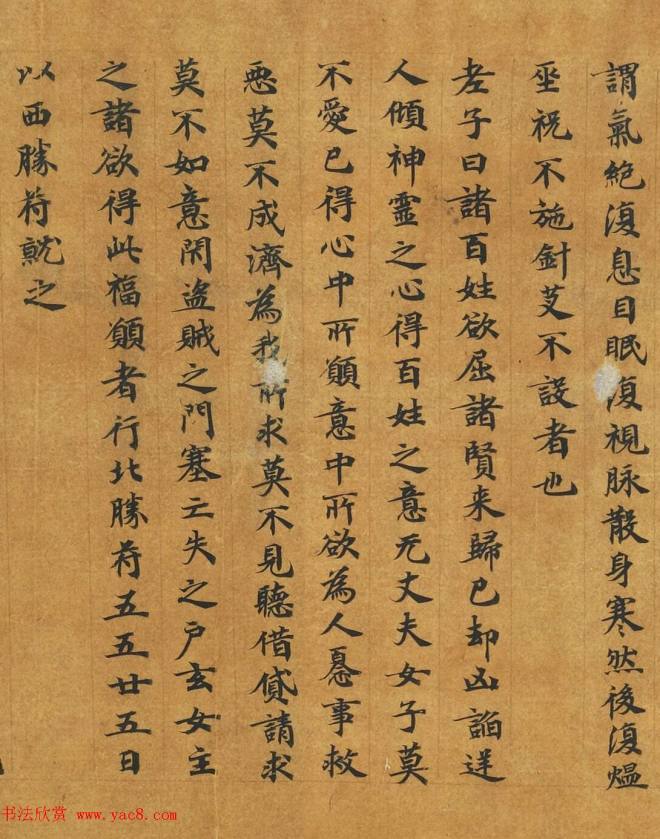 謂氣絕復息目眠復視脉散身寒然後復熅
巫祝不施針艾不設者也
老子曰諸百姓欲屈諸賢来歸已却凶諂送
人傾神靈之心得百姓之意无丈夫女子莫
不愛已得心中所願意中所欲為人憂事救
惡莫不成濟為我所求莫不見聽借貸請求
莫不如意閇盗賊之門塞亡失之户玄女主
之諸欲得此福願者行北勝苻五五廿五日
以西勝苻就之
书法欣赏 www.yac8.com